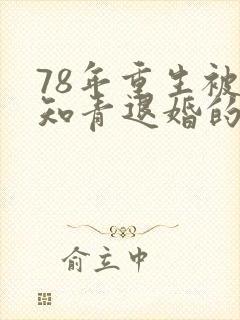 78年重生被
知青退婚的
俞立中